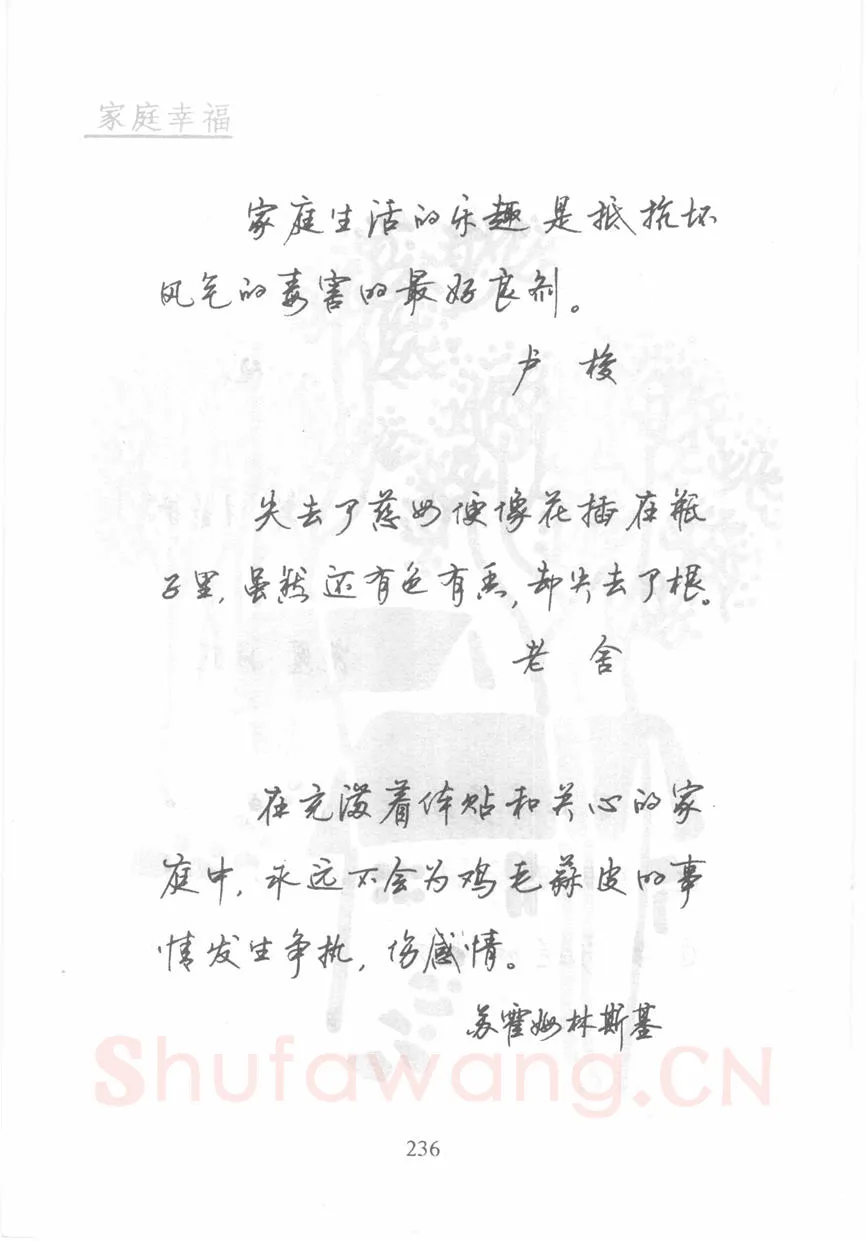 家庭幸福
家庭生活的乐趣是抵抗坏
风气的毒害的最好良剂。
卢 梭
失去了慈母便像花插在瓶
子里,虽然还有色有香,却失去了根。
老 舍
在充满着体贴和关心的家
庭中,永远不会为鸡毛蒜皮的事
情发生争执,伤感情。
苏霍姆林斯基
Shufawang.CN
236